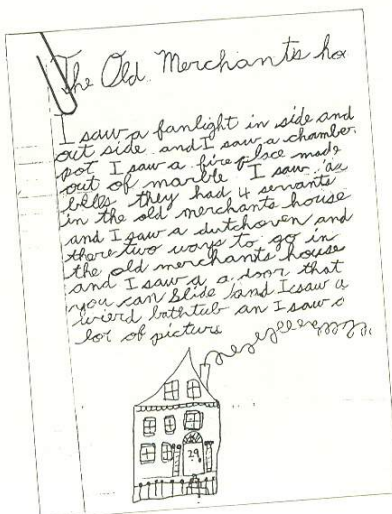 The Old Merchants ho
I saw a fanlight in side and
out side and I saw a chamber
pot I saw a fire place made
out of marble I saw
bells they had 4 servants
in the old merchants house
and I saw a dutchoven and
there two ways to go in
the old merchants house
and I saw a a door that
you can slide and I saw a
wierd bathtub an I saw a
lot of picture
29